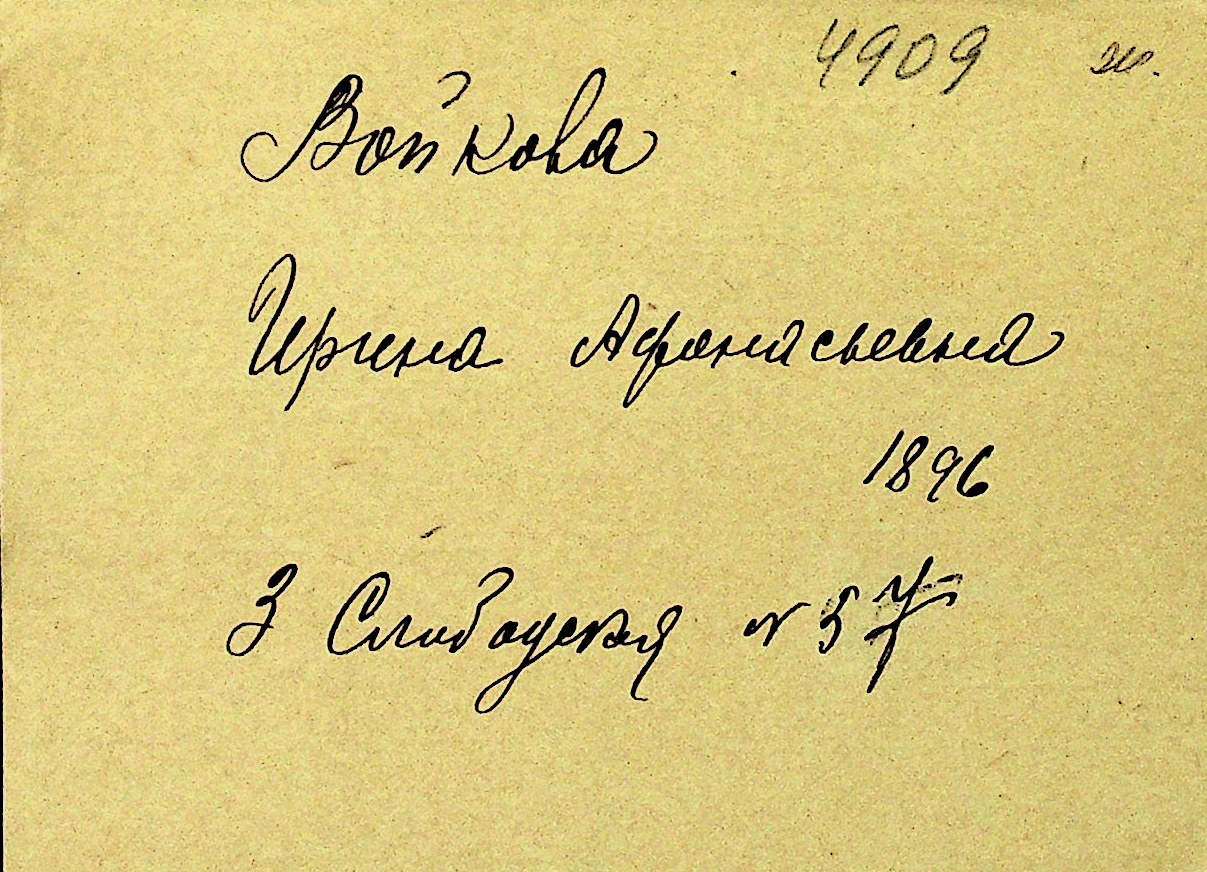 4909 ж.
Войкова
Ирина Афанасьевна
1896
3 Слободская № 57